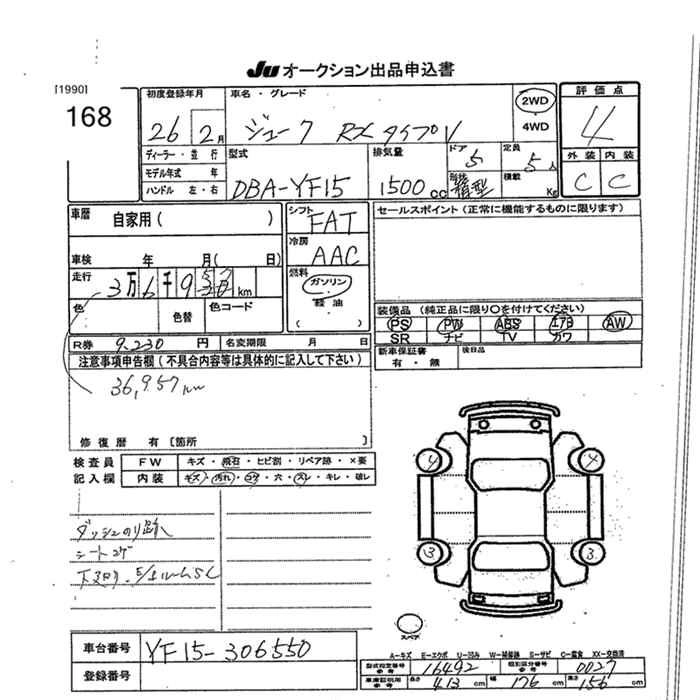 Ju オークション出品申込書
[1990]
168
初度登録年月
26 2月
車名・グレード
ジューク RX タイプV
2WD
4WD
評価点
4
外装 内装
C C
ディーラー・並行
モデル年式 年
ハンドル 左・右
型式
DBA-YF15
排気量
1500cc
ドア
5
定員
5人
形状
箱型
積載
Kg
車歴
自家用( )
車検 年 月( 日)
走行
3万6千9 km
色
色替
色コード
シフト
FAT
冷房
AAC
燃料
ガソリン
軽油
( )
セールスポイント(正常に機能するものに限ります)
装備品(純正品に限り○を付けてください)
PS PW ABS エアB AW
SR ナビ TV カワ
新車保証書
有・無
後日品
R券 9,230 円
名変期限 月 日
注意事項申告欄(不具合内容等は具体的に記入して下さい)
36,957km
修復歴 有[箇所 ]
検査員
記入欄
FW キズ・飛石・ヒビ割・リペア跡・×要
内装 キズ・汚れ・コゲ・穴・スレ・キレ・破レ
ダッシュのり跡
シートコゲ
4 4
3 3
スペア
A-キズ E-エクボ U-凹み W-補修跡 S-サビ C-腐食 XX-交換済
車台番号
YF15-306550
登録番号
型式指定番号
参考
16492
類別区分番号
参考
0027
車庫証明用
参考
長さ 413 cm
幅 176 cm
高さ 156 cm